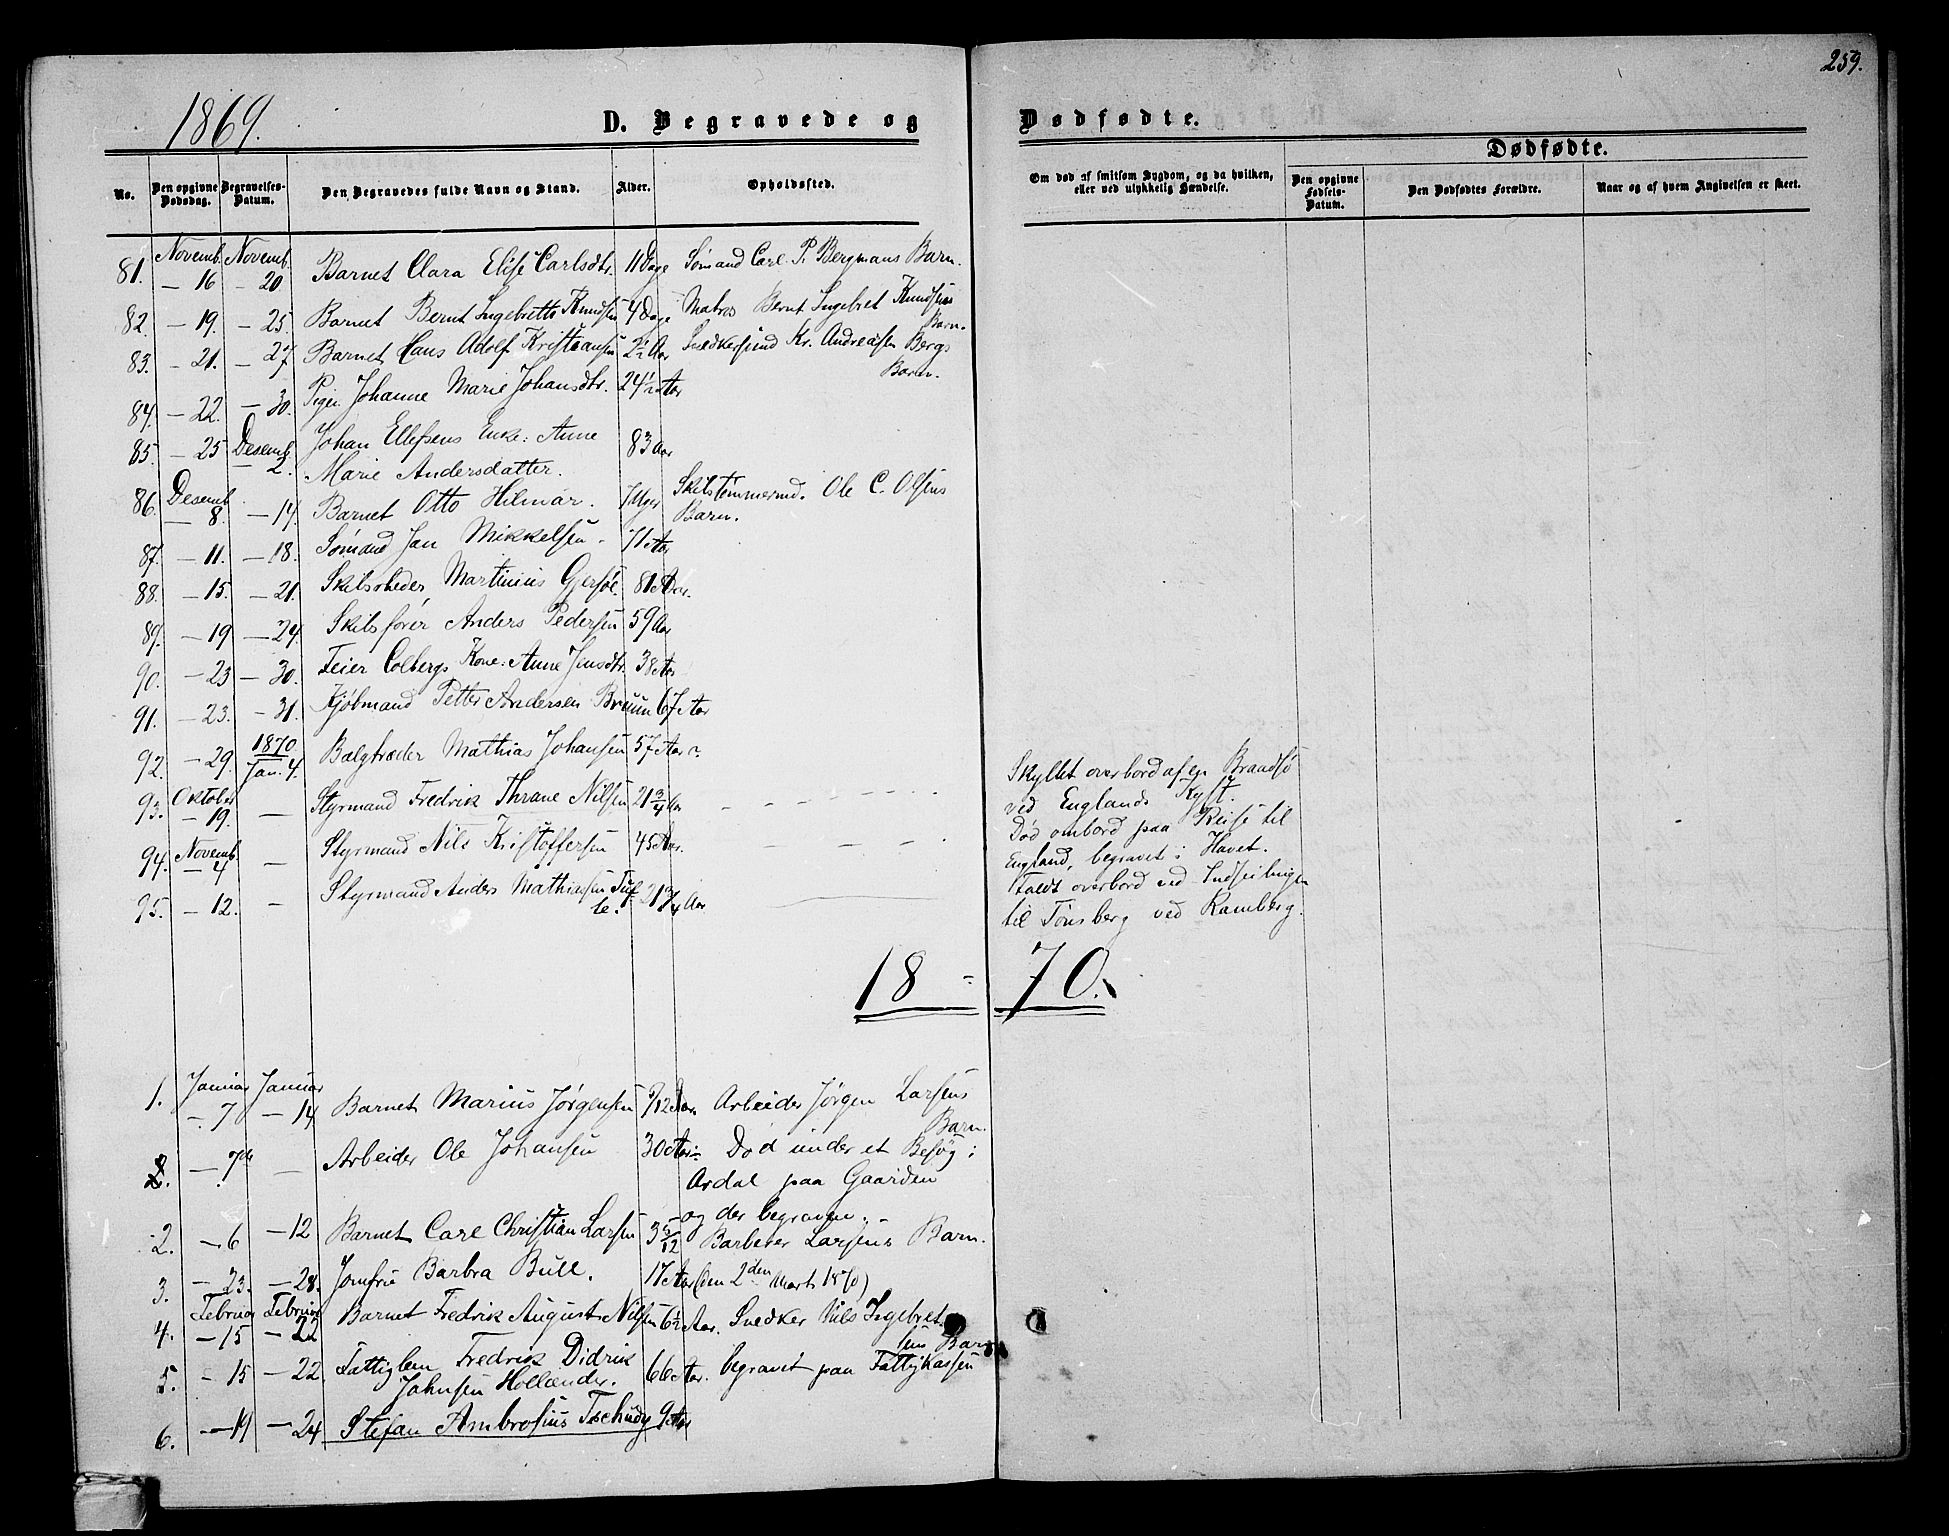 259.
1869.
D. Begravede og Dødfødte.
No.
Den opgivne Dødsdag.
Begravelses-Datum.
Den Begravedes fulde Navn og Stand.
Alder.
Opholdssted.
Om død af smitsom Sygdom, og da hvilken, eller ved ulykkelig Hændelse.
Dødfødte.
Den opgivne Fødsels-Datum.
Den Dødfødtes Forældre.
Naar og af hvem Angivelsen er skeet.
Novemb. Novemb.
81. — 16 — 20 Barnet Clara Elise Carlsdtr. 11 Dage Sømand Carl P. Bergmans Barn.
82. — 19. — 25. Barnet Bernt Ingebretts Knudsen 4 Dage Matros Bernt Ingebret Knudsens
Barn.
83. — 21. — 27. Barnet Hans Adolf Kristiansen 2½ Aar Snedkersvend Kr. Andreasen Bergs
Barn.
84. — 22. — 30. Pige Johanne Marie Johansdtr. 24½ Aar
85. — 25 Desemb. 2. Johan Ellefsens Enke: Anne 83 Aar
Marie Andersdatter.
86. Desemb. — 8. — 14. Barnet Otto Hilmar. 7 Uger Skibstømmermd. Ole C. Olsens
Barn.
87. — 11. — 18. Sømand Jan Mikkelsen. 71 Aar
88. — 15. — 21. Skibsrheder Martinius Gjersøe. 81 Aar.
89. — 19 — 24. Skibsfører Anders Pedersen 59 Aar
90. — 23 — 30. Feier Colbergs Kone: Anne Jensdtr. 38 Aar
91. — 23. — 31. Kjøbmand Petter Andersen Bruun 67 Aar
92. — 29. 1870 Jan. 4. Bælgtræder Mathias Johansen 57 Aar
93. Oktober — 19. — Styrmand Fredrik Thrane Nilsen 21 3/4 Aar — — — — —
Skyllet overbord af en Brandsø
ved Englands Kyst.
94. Novemb. — 4 — Styrmand Nils Kristoffersen 45 Aar. — — — —
Død ombord paa Reise til
England, begravet i Havet.
95. — 12. — Styrmand Anders Mathiassen Tuf-
te. 21 3/4 Aar
Faldt overbord ved Indseilingen
til Tønsberg ved Ramberg.
18 = 70.
Januar Januar
1. — 7 — 14 Barnet Marius Jørgensen /12 Aar Arbeider Jørgen Larsens
Barn.
2. — 7de — Arbeider Ole Johansen 30 Aar Død under et Besøg i
Ardal paa Gaarden
og der begraven.
2. — 6 — 12 Barnet Carl Christian Larsen 3 5/12 Barberer Larsens Barn.
3. — 23. — 28. Jomfru Barbra Bull. 17 Aar (den 2den Marts 1870)
Februar Februar
4. — 15 — 22 Barnet Fredrik August Nilsen 6½ Aar. Snedker Nils Ingebret
sens Barn
5. — 15 — 22 Fattiglem Fredrik Didrik 66 Aar. begravet paa Fattigkassen
Johnsen Hollænder.
6. — 19 — 24 Stefan Ambrosius Tschudy 9 Aar